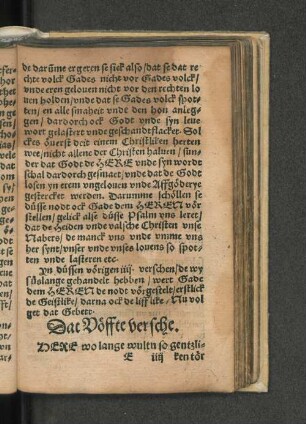 de darūme ergeren se sick also / dat se dat re
chte volck Gades nicht vor Gades volck /
vnde eren gelouen nicht vor den rechten lo
uen holden / vnde se Gades volck spot-
ten / en alle smaheit vnde den hon anleg-
gen / dardorch ock Godt vnde syn leue
wort gelastert vnde geschandtflacket. Sol
ckes ōuerst deit einem Christliken herten
wee / nicht allene der Christen haluen / sūn-
der dat Godt de HERE vnde syn wordt
schal dardorch gesmaet / vnde dat de Godt
losen yn erem ungelouen vnde Affgōderye
gestercket werden. Darumme schōllen se
dūsse nodt ock Gade dem HEREN vōr
stellen / gelick alse dūsse Psalm vns leret /
dat de Heiden vnde valsche Christen vnse
Nabers / de manck vns vnde vmme vns
her synt / vnser vnde vnses louens so spot-
ten vnde lasteren etc.
Yn dūssen vōrigen iiij. verschen / de wy
sūslange gehandelt hebben / wert Gade
dem HEREN de nodt vōrgestelt / erstlick
de Geistlike / darna ock de lifflike / Nu vol
get dat Gebett.
Dat Vōffte versche.
HERE wo lange wultu so gentzli-
E iiij ken tōr